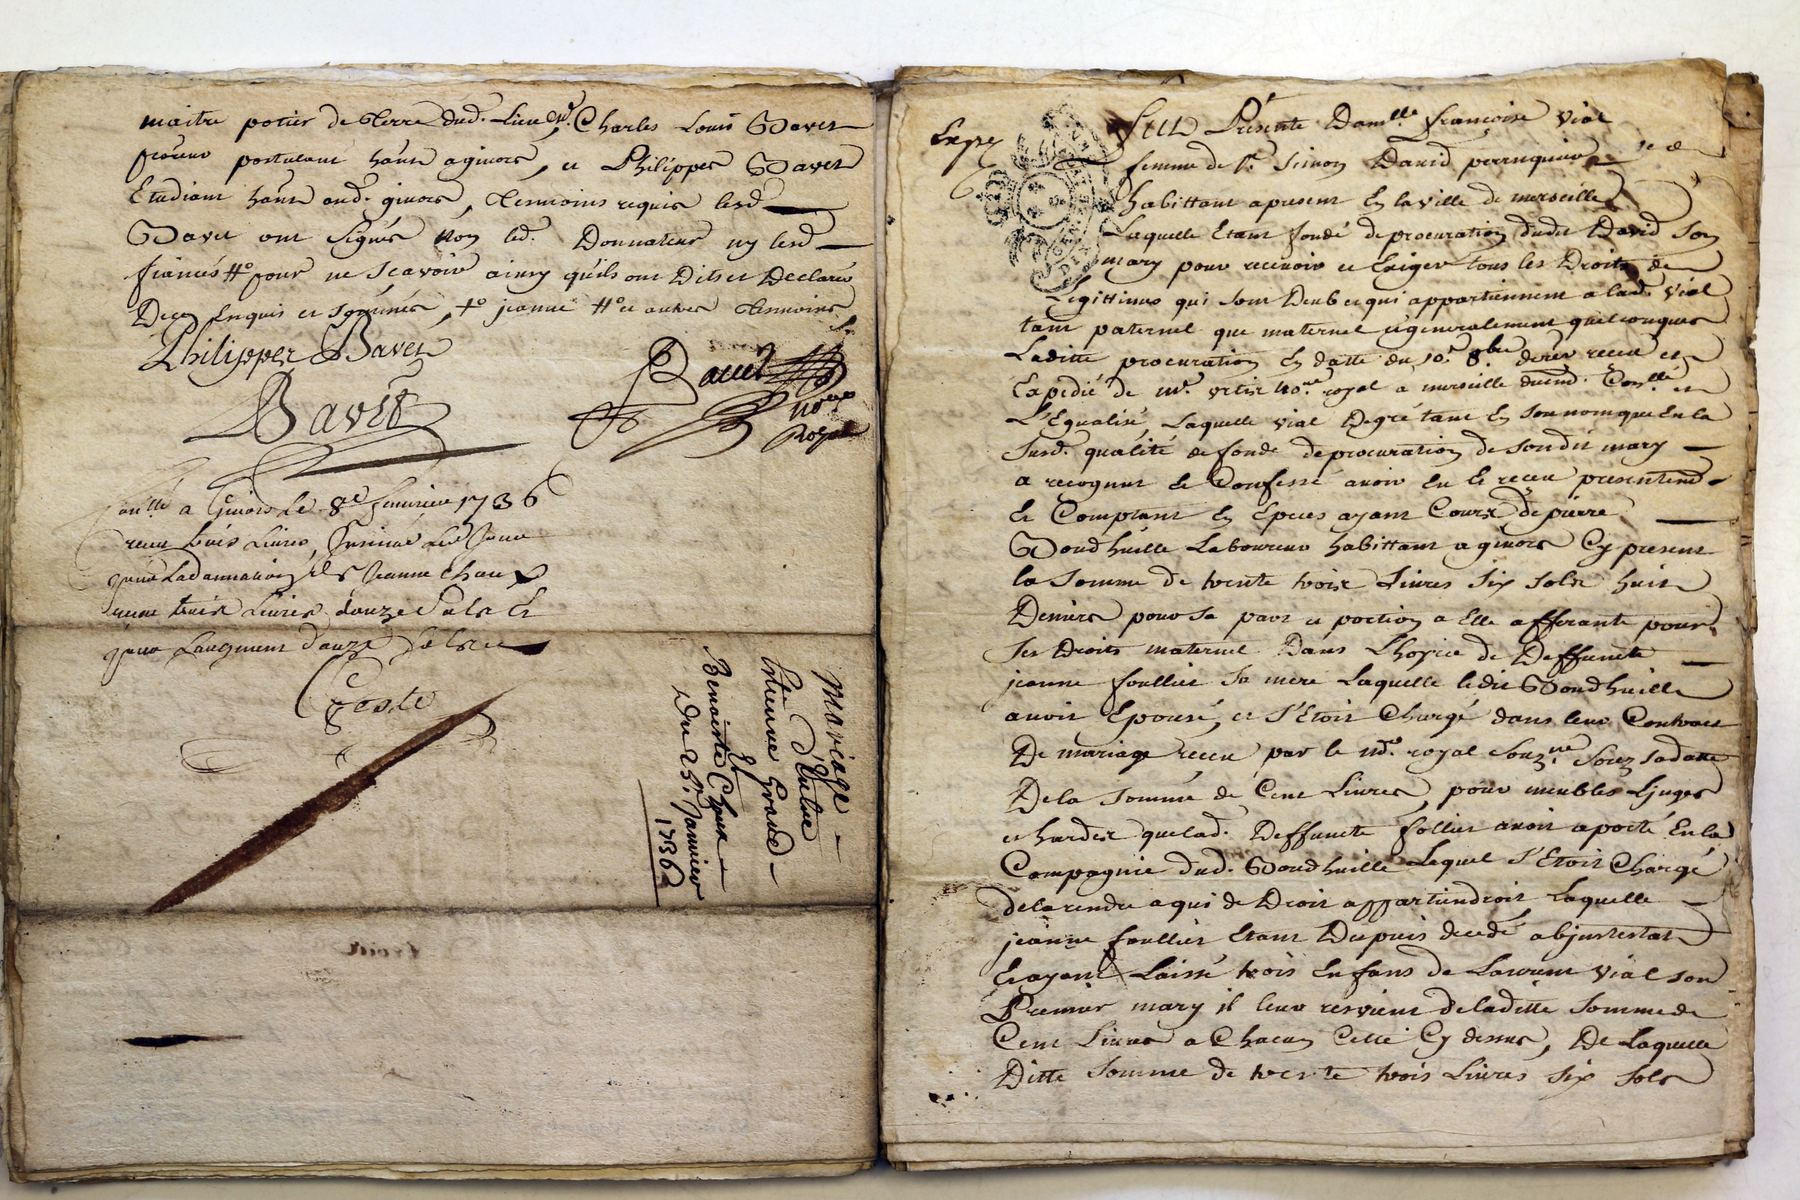 maitre potier de terre dud. Lieu, et Charles Louis Bavet
praticien postulant habitt a givors, et Philippes Bavet
Etudiant habitt aud. givors, tesmoins requis lesd
Bavet ont signés non led. Donnateur ny lesd
fiancés #o pour ne scavoir ainsy quils ont Dit et Declaré
De ce Enquis et sommés, +o jeanne #o et autres tesmoins
Philippes Bavet
Bavet
Bavet
noere
Royal
Conllé a Givors le 8e fevrier 1736
receu trois Livres, Insinué led Jour
receu trois Livres douze sols et
Coste
Mariage
D'
Estienne Giraud
Et
Benoiste Chaux
Du 25e Janvier
1736
Expé
FUT Présente Damlle françoise Vial
femme de Sr. Simon David perruquier
habittant a present En la ville de merseille
Laquelle Etant fondé de procuration dudit David son
mary pour recevoir et Exiger tous les Droits de
Legittimes qui sont Deub et qui appartiennent a lad. Vial
tant paternel que maternel et generalement quelconques
Laditte procuration En datte du 10e 8bre dernier receu et
Expedié de me. notre royal a merseille Conllé et
L'Egualisé, Laquelle vial Degré tant En son nom que En la
susd. qualité de fondé de procuration de son dit mary
a recognut et Confessé avoir Eu et receu presentemt
et Comptant En Epeces ayant Cours de pierre
Boudhuille Laboureur habittant a givors Cy present
la somme de trente trois Livres six sols huit
Deniers pour sa part et portion a Elle afferante pour
ses Droits maternel Dans L'hoyrie de Deffuncte
jeanne foullier sa mere Laquelle ledit Boudhuille
avoit Epousé, et s'Etoit Chargé dans leur Contract
De mariage receu par le nore. royal souzne. souz sa datte
De la somme de Cent Livres, pour meubles Linges
et hardes que lad. Deffuncte follier avoit aporté En la
Compagnie dud. Boudhuille Lequel s'Etoit Chargé
de la rendre a qui de Droit appartiendroit Laquelle
jeanne foullier Etant Depuis decedé abjntestat
Et ayant Laissé trois Enfans de Laurent Vial son
Premier mary il leur revient de laditte somme de
Cent Livres a Chacun Celle Cy dessus, De Laquelle
Ditte somme de trente trois Livres six sols